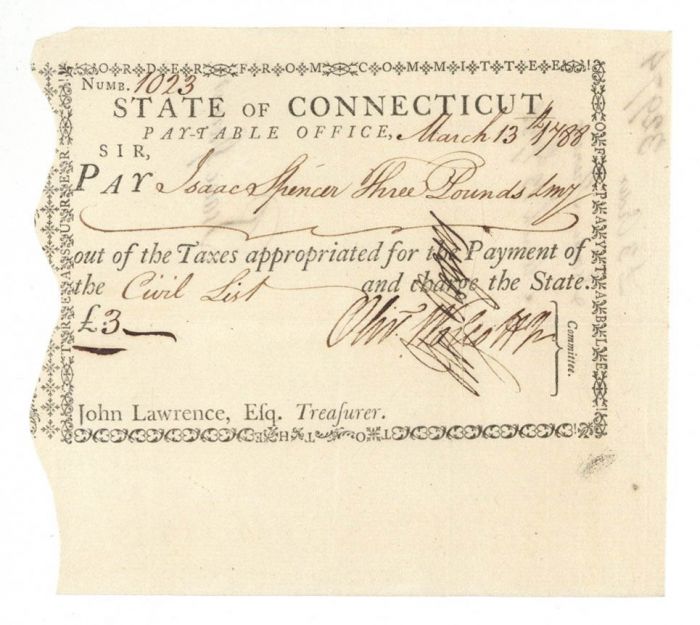 ORDER FROM COMMITTEE
NUMB. 1023
STATE OF CONNECTICUT,
PAY-TABLE OFFICE, March 13th 1788
SIR,
PAY Isaac Spencer Three Pounds Lmy
out of the Taxes appropriated for the Payment of
the Civil List and charge the State.
£3
Committee.
John Lawrence, Eſq. Treaſurer.
OF PAY-TABLE
TO THE
TREASURER